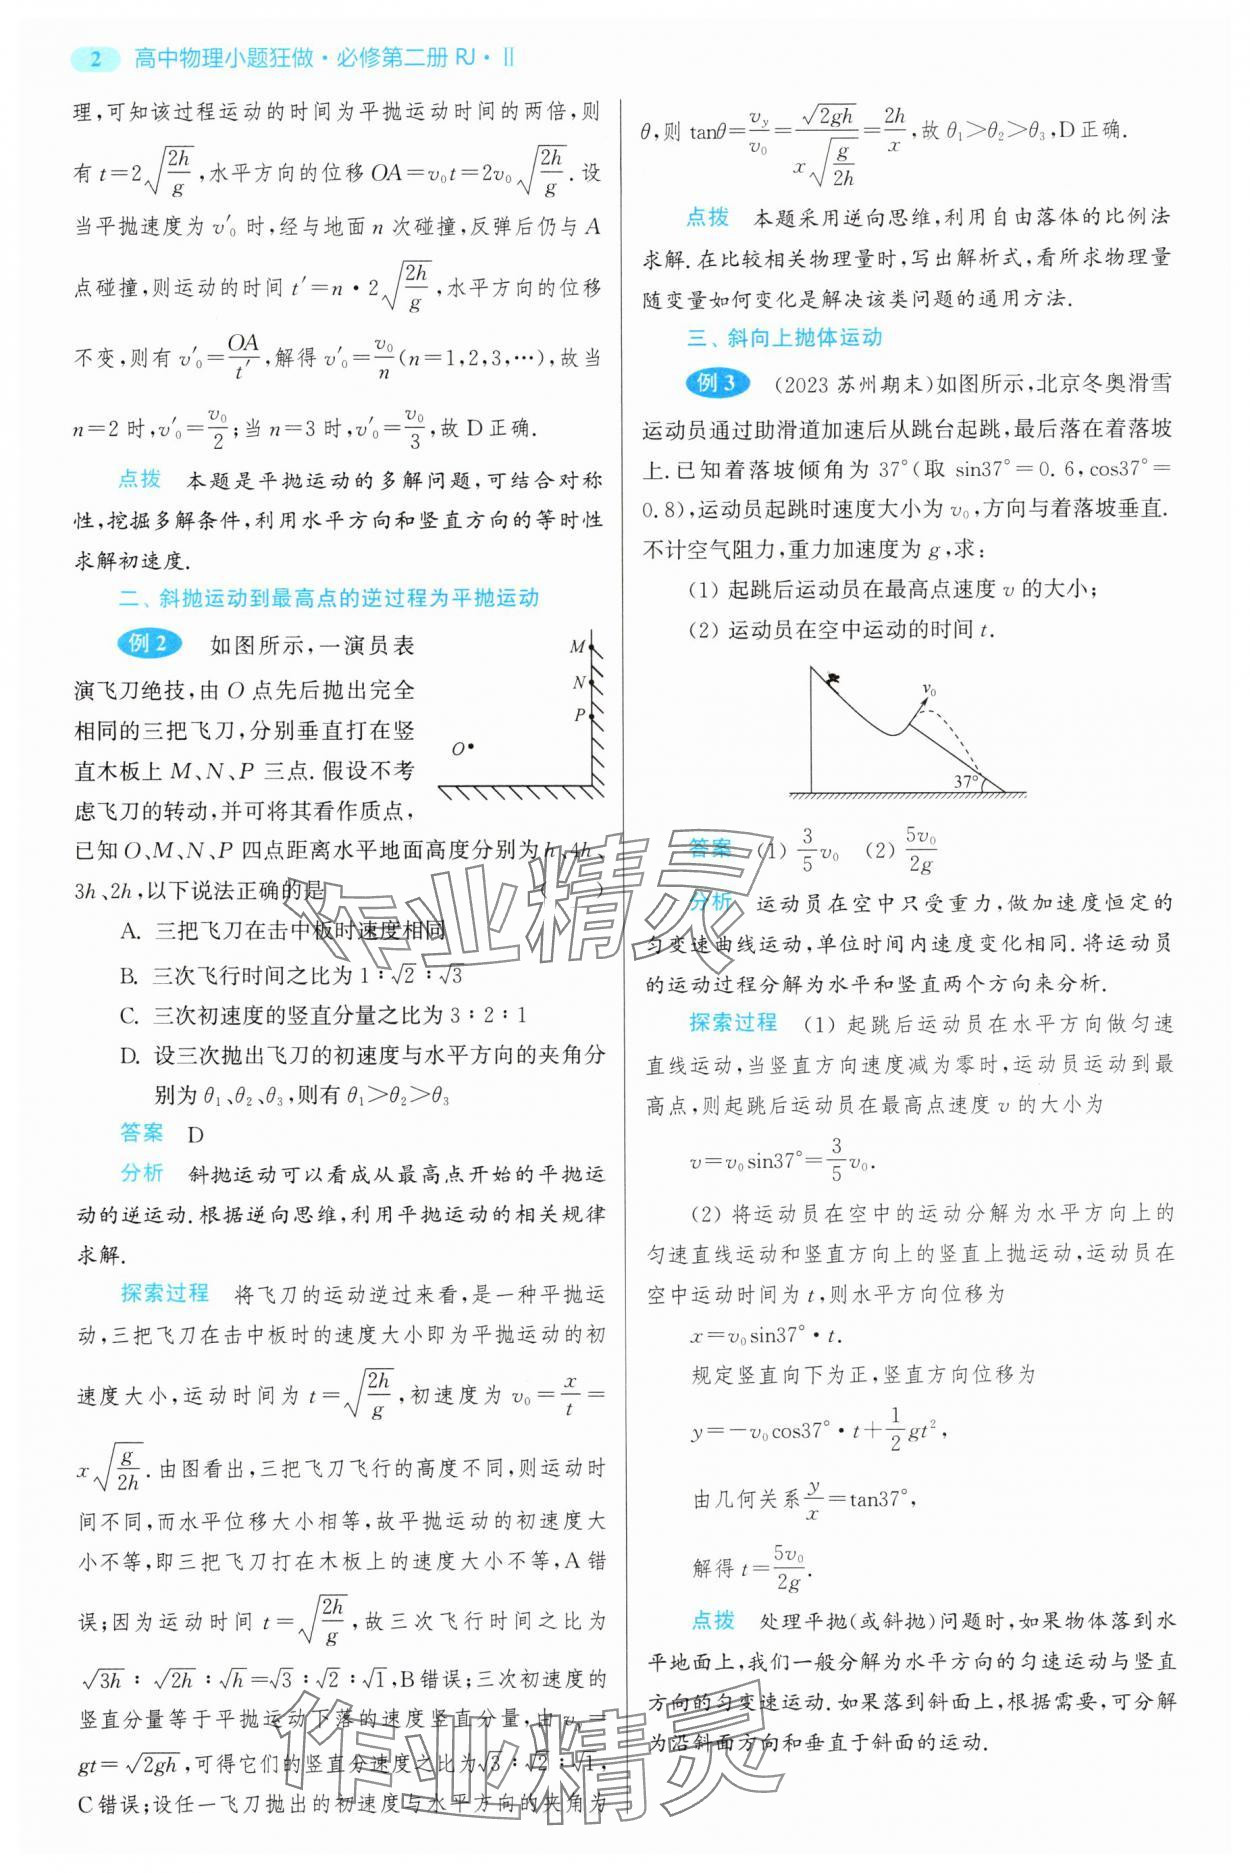 2 高中物理小题狂做·必修第二册 RJ·Ⅱ
理,可知该过程运动的时间为平抛运动时间的两倍,则
有 t=2√(2h/g),水平方向的位移 OA=v₀t=2v₀√(2h/g). 设
当平抛速度为 v′₀ 时,经与地面 n 次碰撞,反弹后仍与 A
点碰撞,则运动的时间 t′=n·2√(2h/g),水平方向的位移
不变,则有 v′₀=OA/t′,解得 v′₀=v₀/n(n=1,2,3,…),故当
n=2 时,v′₀=v₀/2;当 n=3 时,v′₀=v₀/3,故 D 正确.
点拨 本题是平抛运动的多解问题,可结合对称
性,挖掘多解条件,利用水平方向和竖直方向的等时性
求解初速度.
二、斜抛运动到最高点的逆过程为平抛运动
例 2 如图所示,一演员表
演飞刀绝技,由 O 点先后抛出完全
相同的三把飞刀,分别垂直打在竖
直木板上 M、N、P 三点. 假设不考
虑飞刀的转动,并可将其看作质点,
M
N
P
O
已知 O、M、N、P 四点距离水平地面高度分别为 h、4h、
3h、2h,以下说法正确的是 ( )
A. 三把飞刀在击中板时速度相同
B. 三次飞行时间之比为 1∶√2∶√3
C. 三次初速度的竖直分量之比为 3∶2∶1
D. 设三次抛出飞刀的初速度与水平方向的夹角分
别为 θ₁、θ₂、θ₃,则有 θ₁>θ₂>θ₃
答案 D
分析 斜抛运动可以看成从最高点开始的平抛运
动的逆运动. 根据逆向思维,利用平抛运动的相关规律
求解.
探索过程 将飞刀的运动逆过来看,是一种平抛运
动,三把飞刀在击中板时的速度大小即为平抛运动的初
速度大小,运动时间为 t=√(2h/g),初速度为 v₀=x/t=
x√(g/2h). 由图看出,三把飞刀飞行的高度不同,则运动时
间不同,而水平位移大小相等,故平抛运动的初速度大
小不等,即三把飞刀打在木板上的速度大小不等,A 错
误;因为运动时间 t=√(2h/g),故三次飞行时间之比为
√3h∶√2h∶√h=√3∶√2∶√1,B 错误;三次初速度的
竖直分量等于平抛运动下落的速度竖直分量,由 vᵧ=
gt=√2gh,可得它们的竖直分速度之比为√3∶√2∶√1,
C 错误;设任一飞刀抛出的初速度与水平方向的夹角为
θ,则 tanθ=vᵧ/v₀=√2gh/(x√(g/2h))=2h/x,故 θ₁>θ₂>θ₃,D 正确.
点拨 本题采用逆向思维,利用自由落体的比例法
求解. 在比较相关物理量时,写出解析式,看所求物理量
随变量如何变化是解决该类问题的通用方法.
三、斜向上抛体运动
例 3 (2023 苏州期末)如图所示,北京冬奥滑雪
运动员通过助滑道加速后从跳台起跳,最后落在着落坡
上. 已知着落坡倾角为 37°(取 sin37°=0. 6,cos37°=
0.8),运动员起跳时速度大小为 v₀,方向与着落坡垂直.
不计空气阻力,重力加速度为 g,求:
(1) 起跳后运动员在最高点速度 v 的大小;
(2) 运动员在空中运动的时间 t.
v₀
37°
答案 (1) 3/5 v₀ (2) 5v₀/2g
分析 运动员在空中只受重力,做加速度恒定的
匀变速曲线运动,单位时间内速度变化相同. 将运动员
的运动过程分解为水平和竖直两个方向来分析.
探索过程 (1) 起跳后运动员在水平方向做匀速
直线运动,当竖直方向速度减为零时,运动员运动到最
高点,则起跳后运动员在最高点速度 v 的大小为
v=v₀sin37°=3/5 v₀.
(2) 将运动员在空中的运动分解为水平方向上的
匀速直线运动和竖直方向上的竖直上抛运动,运动员在
空中运动时间为 t,则水平方向位移为
x=v₀sin37°·t.
规定竖直向下为正,竖直方向位移为
y=-v₀cos37°·t+1/2 gt²,
由几何关系 y/x=tan37°,
解得 t=5v₀/2g.
点拨 处理平抛(或斜抛)问题时,如果物体落到水
平地面上,我们一般分解为水平方向的匀速运动与竖直
方向的匀变速运动. 如果落到斜面上,根据需要,可分解
为沿斜面方向和垂直于斜面的运动.
作业精灵
作业精灵